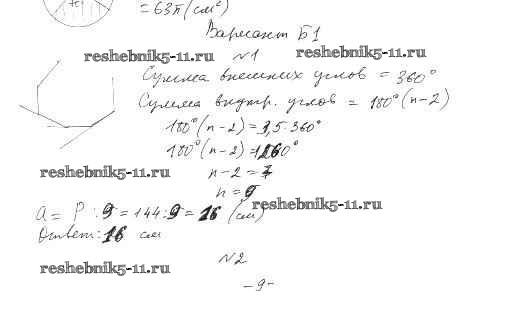 = 63π (см²)
Вариант Б1
reshebnik5-11.ru №1 reshebnik5-11.ru
Сумма внешних углов = 360°
Сумма внутр. углов = 180°(n-2)
180°(n-2)=3,5·360°
180°(n-2)=1260°
reshebnik5-11.ru n-2=7
n=9
a = P : 9 = 144 : 9 = 16 (см) reshebnik5-11.ru
Ответ: 16 см
№2
reshebnik5-11.ru
-9-